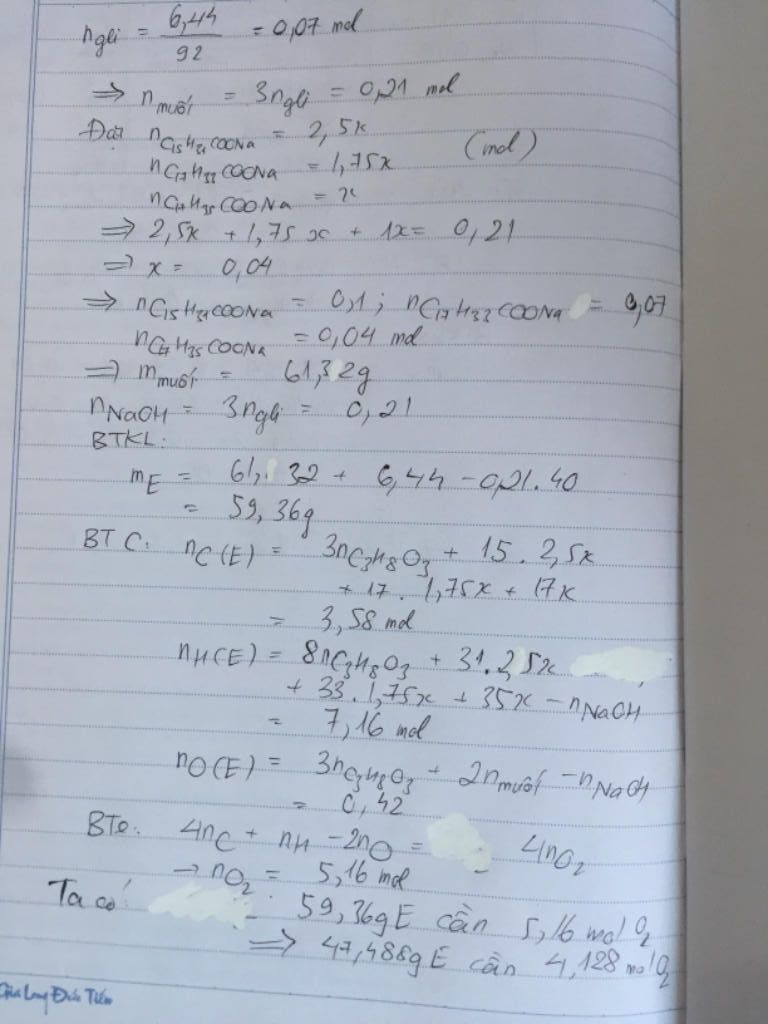 n_gli = 6,44/92 = 0,07 mol
⇒ n_muối = 3n_gli = 0,21 mol
Đặt n_C15H31COONa = 2,5x
n_C17H33COONa = 1,75x (mol)
n_C17H35COONa = x
⇒ 2,5x + 1,75x + 1x = 0,21
⇒ x = 0,04
⇒ n_C15H31COONa = 0,1 ; n_C17H33COONa = 0,07
n_C17H35COONa = 0,04 mol
⇒ m_muối = 61,32g
n_NaOH = 3n_gli = 0,21
BTKL:
m_E = 61,32 + 6,44 - 0,21.40
= 59,36g
BT C: n_C(E) = 3n_C3H8O3 + 15.2,5x
+ 17.1,75x + 17x
= 3,58 mol
n_H(E) = 8n_C3H8O3 + 31.2,5x
+ 33.1,75x + 35x - n_NaOH
= 7,16 mol
n_O(E) = 3n_C3H8O3 + 2n_muối - n_NaOH
= 0,42
BTe: 4n_C + n_H - 2n_O = 4n_O2
→ n_O2 = 5,16 mol
Ta có: 59,36g E cần 5,16 mol O2
⇒ 47,488g E cần 4,128 mol O2
Long Đức Tiến